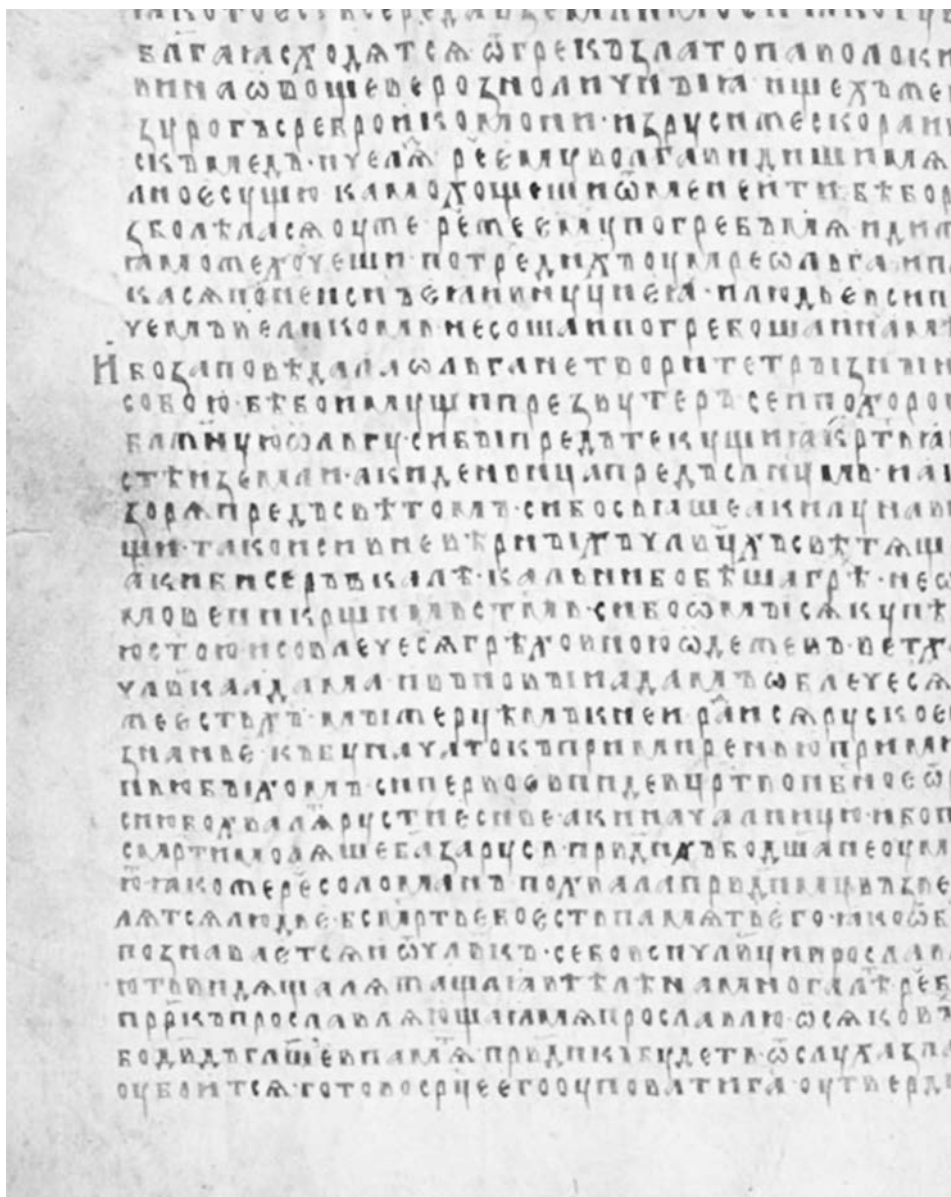 ꙗко то єс̑ середа в земли моєи ꙗко ту
блг҃аꙗ сходѧтсѧ. ѿ грекъ злато паволоки
вина ѡвощеве розноличныꙗ. и щехъ же
з урогъ сребро и комони. из руси же скора и
скъ медъ. и челѧд̑. реч̑е єму волга видиши мѧ
лною сущю. камо хощеши ѿ мене ити. бѣ бо р
зболѣласѧ оуже. реч̑ же єму погребъ мѧ иди
ꙗмо же хочеши. по трех дн҃хъ оумре ѡльга. и пл
касѧ по неи сн҃ъ єꙗ и внуци єꙗ. и людьє вси пл
чемъ великомь. несоша и погребоша и на м
и бо заповѣдала ѡльга не творити трызны н
собою. бѣ бо имущи презвутеръ. сеи похоро
блж҃ную ѡльгу. си бы предътекущиꙗ крт҃ьꙗ
стѣи земли. аки деньница предъ слнц҃мь. и а
зорѧ предъ свѣтомъ. си бо сьꙗше аки луна в
щи. тако и си в невѣрныхъ члв҃цхъ свѣтѧщ
аки бисеръ в калѣ. кальни бо бѣша грѣ. не
мовени крщ҃ньмь ст҃мь. си бо ѡмысѧ купѣ
ю ст҃ою. и совлечесѧ грѣховною ѡдежею. ветх
члв҃ка адама. и въ новыи адамъ ѡблечесѧ
же єсть хъ. мы же рцѣмъ к неи. рад̑исѧ руское
знаньє. къ бу҃ начатокъ примиренью. при
пьюбыхомъ. си первоє вниде в цр҃тво нб҃ноє ѿ
си ю бо хвалѧт̑ рустиє сн҃ве. аки началницю. ибо п
смр҃ти молѧше ба҃ за русь. прв҃дныхъ бо дш҃а не оум
ю̑ ꙗкоже реч̑ соломанъ. похвала прв҃днму възве
лѧтсѧ людьє. бесмр҃тьє бо єсть памѧть єго. ꙗко ѿ б
познаваєтсѧ и ѿ члв҃къ. се бо вси члв҃ци прославл
ють видѧща лежаща в тѣлѣ на многа лѣт̑. реч̑ б
прр҃къ. прославлѧющаꙗ мѧ прославлю. ѡ сѧковъ
бо дв҃дъ гл҃ше. в памѧт̑ прв҃дникъ будеть. ѿ слуха зла
оубоитсѧ. готово срд҃це єго оуповати на га҃. оутверд